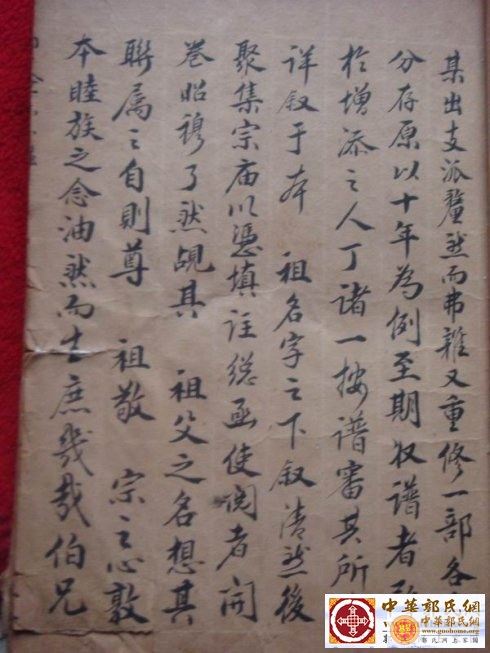 集出支派釐然而弗雜又重修一部各
分存原以十年為例至期收譜者
於增添之人丁諸一按譜審其所
详叙于本 祖名字之下叙清然後
聚集宗庙以憑填註繕函使阅者开
卷昭穆了然觇其 祖父之名想其
聯属之自則尊 祖敬 宗之心敦
本睦族之念油然而生庶幾哉伯兄
中華郭氏網
中華郭氏網
www.guohome.org